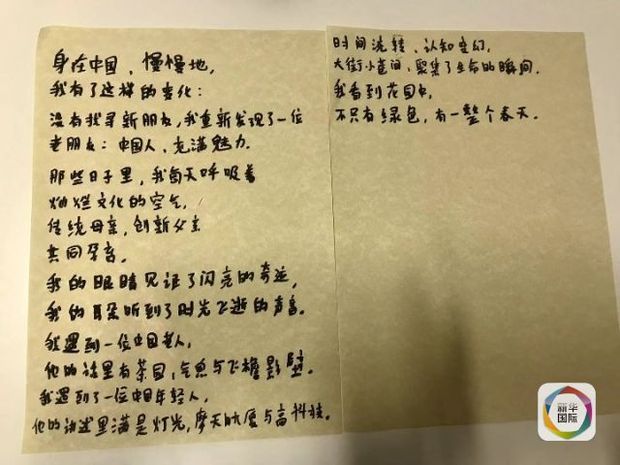 身在中国，慢慢地，
我有了这样的变化：
没有找寻新朋友，我重新发现了一位
老朋友：中国人，充满魅力.
那些日子里，我每天呼吸着
灿烂文化的空气，
传统母亲，创新父亲
共同孕育。
我的眼睛见证了闪亮的奇迹，
我的耳朵听到了时光飞逝的声音。
我遇到一位中国老人，
他的话里有茶园，气息与飞檐影壁。
我遇到了一位中国年轻人，
他的讲述里满是灯光，摩天大厦与高科技。
时间流转，认知变幻，
大街小巷间，聚集了生命的瞬间，
我看到花园中，
不只有绿色，有一整个春天。
新华
国际